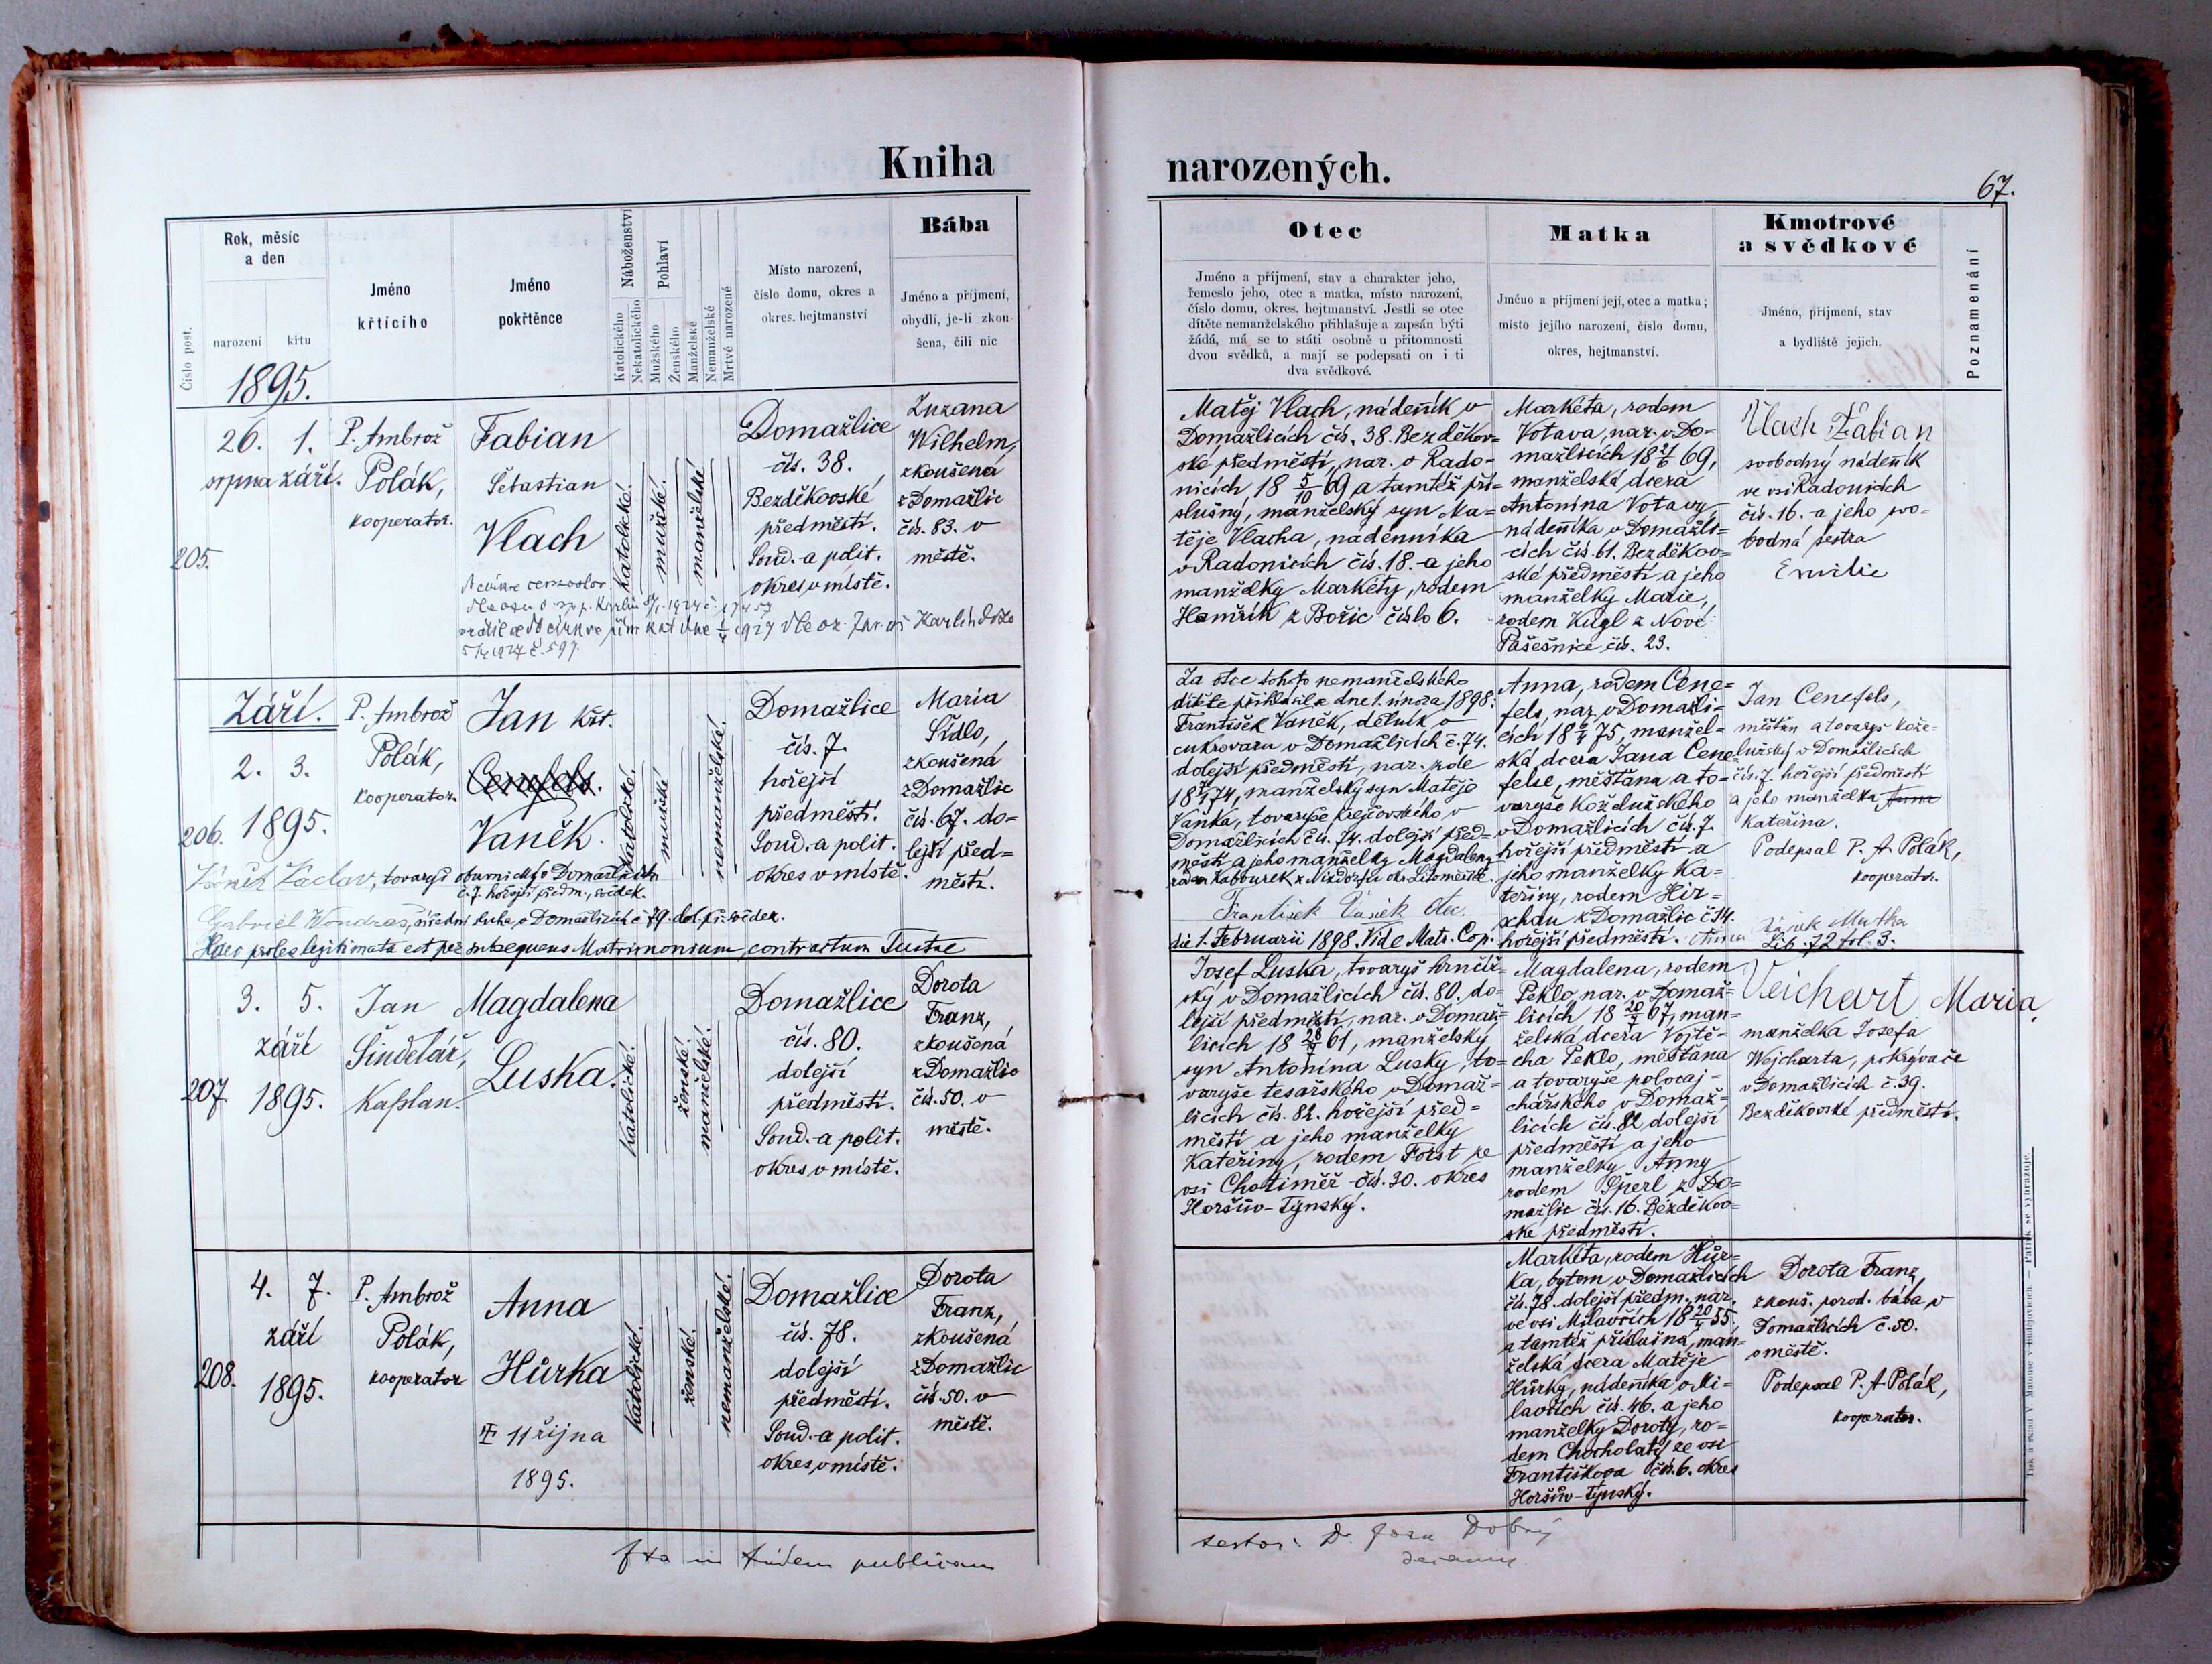 Kniha
narozených.
67.
Číslo post.
Rok, měsíc
a den
narození
křtu
1895.
Jméno
křtícího
Jméno
pokřtěnce
Náboženství
Katolického
Nekatolického
Pohlaví
Mužského
Ženského
Manželské
Nemanželské
Mrtvé narozené
Místo narození,
číslo domu, okres a
okres. hejtmanství
Bába
Jméno a příjmení,
obydlí, je-li zkou-
šena, čili nic
Otec
Jméno a příjmení, stav a charakter jeho,
řemeslo jeho, otec a matka, místo narození,
číslo domu, okres. hejtmanství. Jestli se otec
dítěte nemanželského přihlašuje a zapsán býti
žádá, má se to státi osobně u přítomnosti
dvou svědků, a mají se podepsati on i ti
dva svědkové.
Matka
Jméno a příjmení její, otec a matka;
místo jejího narození, číslo domu,
okres, hejtmanství.
Kmotrové
a svědkové
Jméno, příjmení, stav
a bydliště jejich.
Poznamenání
205.
26. 1.
srpna září.
P. Ambrož
Polák,
kooperator.
Fabian
Šebastian
Vlach
katolické.
mužské.
manželské
Domažlice
čís. 38.
Bezděkovské
předměstí.
Soud.-a polit.
okres v místě.
Zuzana
Wilhelm,
zkoušená
z Domažlic
čís. 83. v
městě.
Matěj Vlach, nádeník v
Domažlicích čís. 38. Bezděkov-
ské předměstí, nar. v Rado-
nicích 18 5/10 69 a tamtéž pří-
slušný, manželský syn Ma-
těje Vlacha, nádenníka
v Radonicích čís. 18. a jeho
manželky Markéty, rodem
Hamřík z Božic číslo 6.
Markéta, rodem
Votava, nar. v Do-
mažlicích 18 21/6 69,
manželská dcera
Antonína Votavy,
nádeníka v Domažli-
cích čís. 61. Bezděkov-
ské předměstí a jeho
manželky Marie,
rodem Kugl z Nové
Pašešnice čís. 23.
Vlach Fabian
svobodný nádeník
ve vsi Radonicích
čís. 16. a jeho svo-
bodná sestra
Emilie
206.
Září.
2. 3.
1895.
P. Ambrož
Polák,
kooperator.
Jan Křt.
Cenefels.
Vaněk.
katolické.
mužské
nemanželské.
Domažlice
čís. 7.
hořejší
předměstí.
Soud.-a polit.
okres v místě.
Maria
Šídlo,
zkoušená
z Domažlic
čís. 67. do-
lejší před-
městí.
Václav, tovaryš obuvnický v Domažlicích
č. 7. hořejší předm., svědek.
Gabriel Wondraš, úřední sluha v Domažlicích č 79. dol. př. svědek.
Haec proles legitimata est per subsequens Matrimonium, contractum Tustae
Za otce tohoto nemanželského
dítěte přihlásil se dne 1. února 1898.
František Vaněk, dělník v
cukrovaru v Domažlicích č. 74.
dolejší předměstí, nar. zde
manželský syn Matěje
Vaňka, tovaryše krejčovského v
Domažlicích čís. 74. dolejší před-
městí a jeho manželky Magdaleny
rodem Kabourek z Nixdorfu okr. Litoměřice.
František Vaněk otec.
die 1. Februarii 1898. Vide Matr. Cop.
Anna, rodem Cene-
fels, nar. v Domažli-
cích manžel-
ská dcera Jana Cene-
felse, měšťana a to-
varyše koželužského
v Domažlicích čís. 7.
hořejší předměstí a
jeho manželky Ka-
teřiny, rodem Hir-
schau z Domažlic č 14.
hořejší předměstí.
Jan Cenefels,
měšťan a tovaryš kože-
lužský v Domažlicích
čís. 7. hořejší předměstí
a jeho manželka Anna
Kateřina.
Podepsal P. A. Polák,
kooperator.
Lib. 12 fol. 3.
207.
3. 5.
září
1895.
Jan
Šindelář,
kaplan.
Magdalena
Luska.
katolické.
ženské.
manželské.
Domažlice
čís. 80.
dolejší
předměstí.
Soud.-a polit.
okres v místě.
Dorota
Franz,
zkoušená
z Domažlic
čís. 50. v
městě.
Josef Luska, tovaryš hrnčíř-
ský v Domažlicích čís. 80. do-
lejší předměstí, nar. v Domaž-
licích manželský
syn Antonína Lusky, to-
varyše tesařského v Domaž-
licích čís. 82. hořejší před-
městí a jeho manželky
Kateřiny, rodem Forst ze
vsi Chotiměř čís. 30. okres
Horšův-Týnský.
Magdalena, rodem
Peklo, nar. v Domaž-
licích man-
želská dcera Vojtě-
cha Peklo, měšťana
a tovaryše
v Domaž-
licích čís. 82 dolejší
předměstí a jeho
manželky Anny
rodem Šperl z Do-
mažlic čís. 16. Bezděkov-
ské předměstí.
Veichart Maria,
manželka Josefa
Wejcharta, pokrývače
v Domažlicích č. 39.
Bezděkovské předměstí.
208.
4. 7.
září
1895.
P. Ambrož
Polák,
kooperator
Anna
Hůrka
11 října
1895.
katolické.
ženské.
nemanželské.
Domažlice
čís. 78.
dolejší
předměstí.
Soud.-a polit.
okres v místě.
Dorota
Franz,
zkoušená
z Domažlic
čís. 50. v
městě.
Markéta, rodem Hůr-
ka, bytem v Domažlicích
čís. 78. dolejší předm., nar.
ve vsi Milavčích
a tamtéž příslušná, man-
želská dcera Matěje
Hůrky, nádeníka v Mi-
lavčích čís. 46. a jeho
manželky Doroty, ro-
dem Chocholatý ze vsi
Františkova čís. 6. okres
Horšův-Týnský.
Dorota Franz,
zkouš. porod. bába v
Domažlicích č. 50.
v městě.
Podepsal P. A. Polák,
kooperator.
in fidem publicam
testor: Dobrý